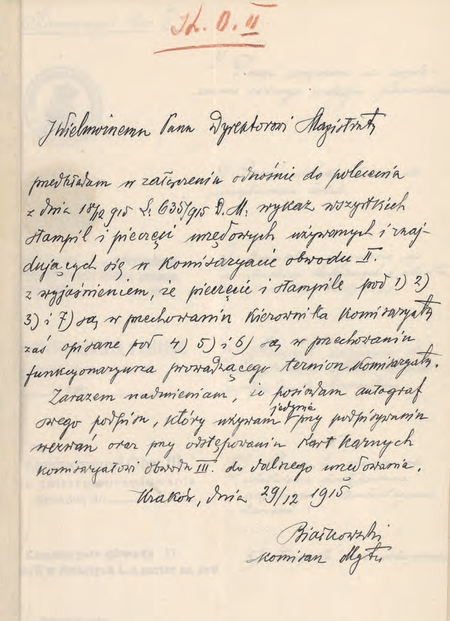 K. O. II
JWielmożnemu Panu Dyrektorowi Magistratu
przedkładam w załączeniu odnośnie do polecenia
z dnia 18/12 915 L: 635/915 D. M. wykaz wszystkich
stampil i pieczęci urzędowych używanych i znaj-
dujących się w Komisaryacie obwodu II.
z wyjaśnieniem, że pieczęcie i stampile pod 1) 2)
3) i 7) są w przechowaniu Kierownika Komisaryatu
zaś opisane pod 4) 5) i 6) są w przechowaniu
funkcyonaryusza prowadzącego termion Komisaryatu.
Zarazem nadmieniam, iż posiadam autograf
swego podpisu, który używam jedynie przy podpisywaniu
wezwań oraz przy odstępowaniu Kart Karnych
Komisaryatowi obwodu III. do dalszego urzędowania.
Kraków, dnia 29/12 1915
Białkowski
Komisarz Mgtu